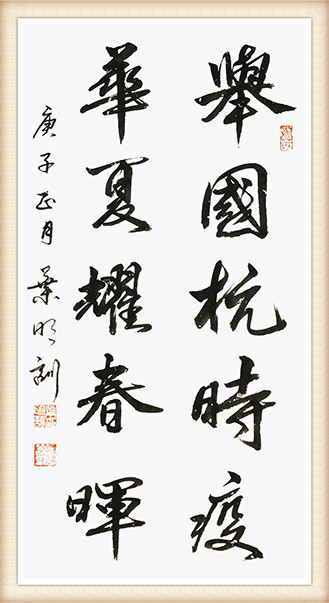 舉國抗時疫
華夏耀春暉
庚子正月 葉明訓